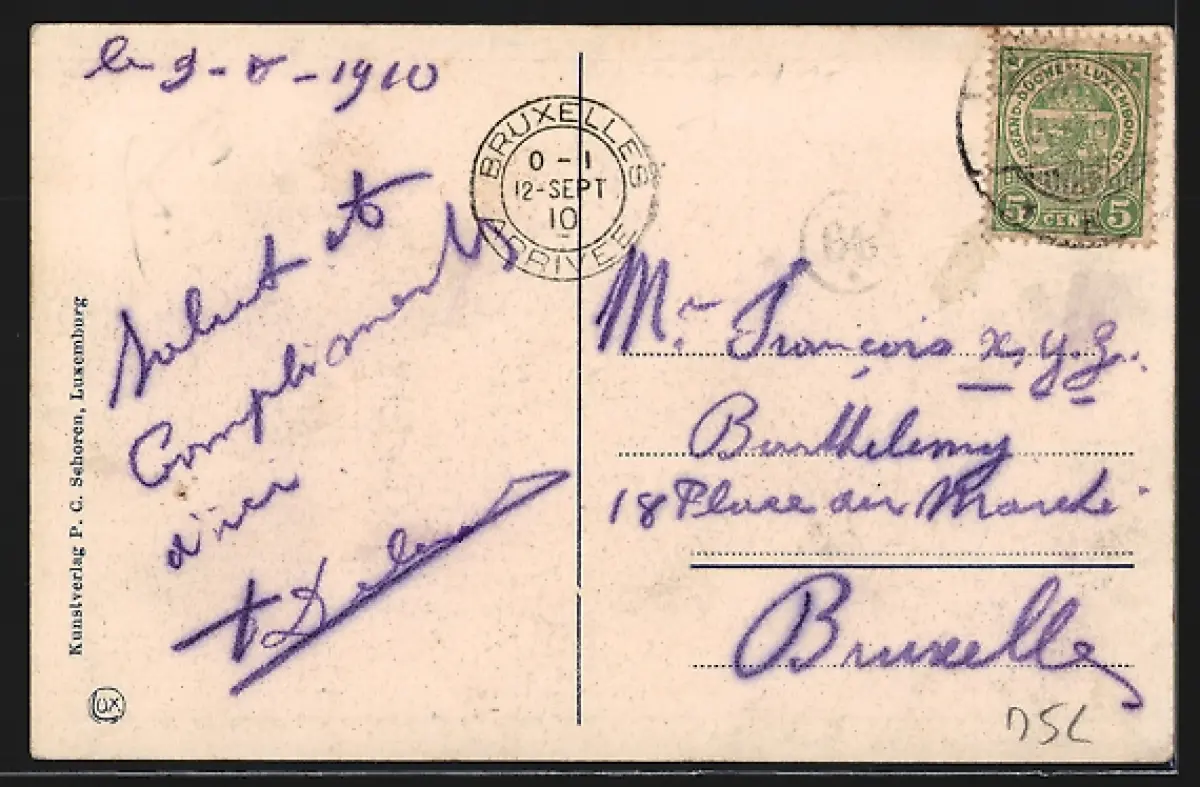 le 9-8-1910
Salut et
Compliments
d'ici
Kunstverlag P. C. Schoren, Luxemburg
BRUXELLES
0 - 1
12-SEPT
10
ARRIVEE
GRAND-DUCHÉ DE LUXEMBOURG
5 CENT 5
Mr. François x. y. z.
Barthelemy
18 Place du Marché
Bruxelles